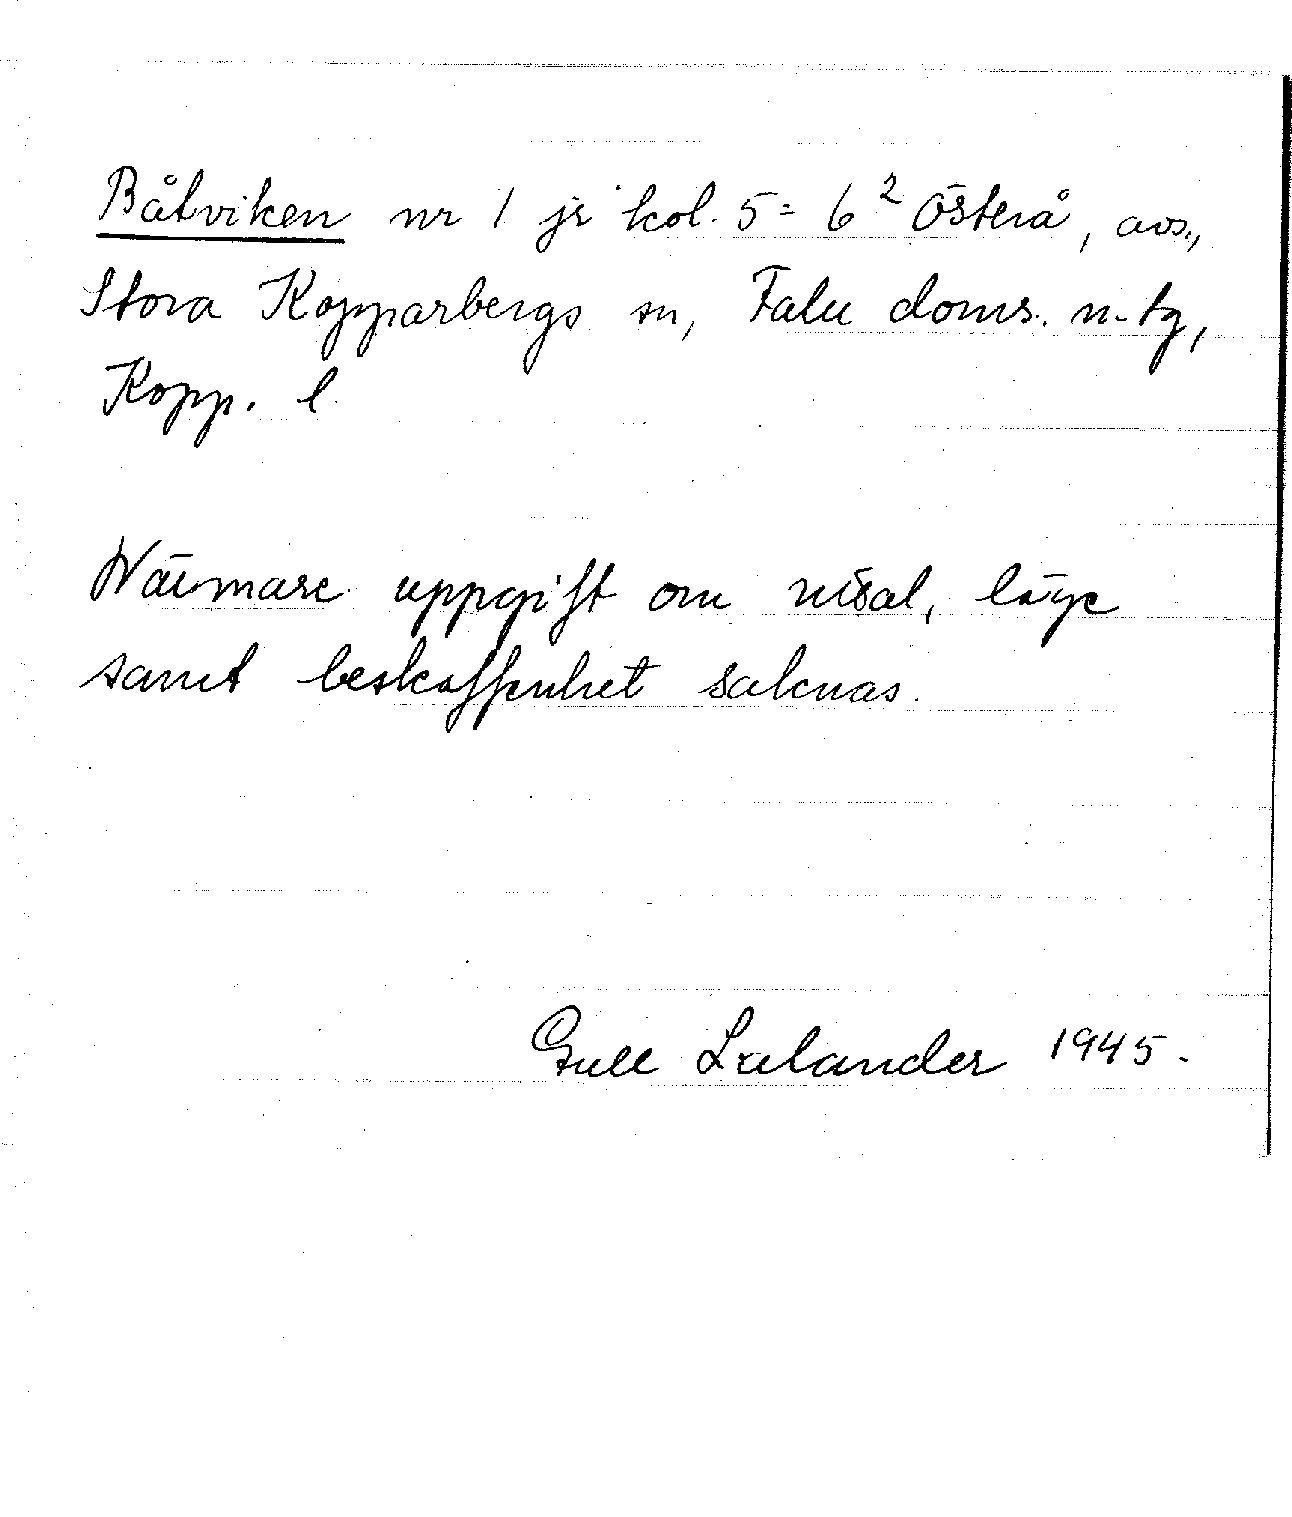 Båtviken nr 1 jr kol. 5 = 6² Österå, avs.,
Stora Kopparbergs sn, Falu doms. n-tg,
Kopp. l
Närmare uppgift om uttal, läge
samt beskaffenhet saknas.
Gull Lxlander 1945.